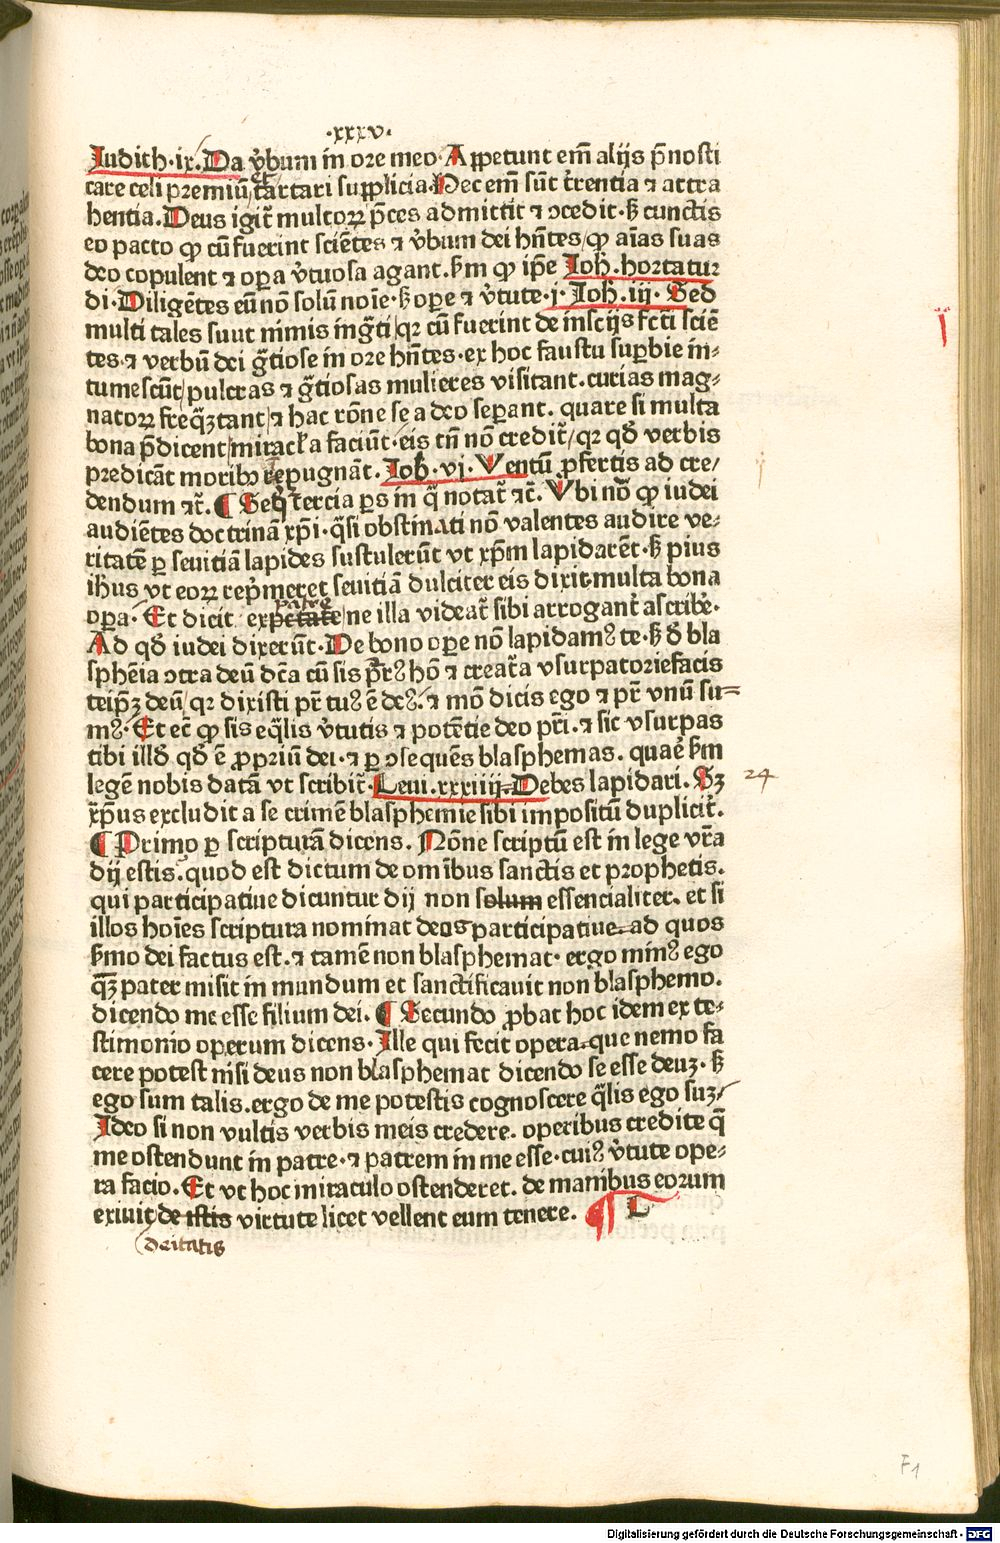 ·xxxv·
Judith·ix. Da v̓bum in ore meo· Appetunt em̄ alijs p̄nosti
care celi premiū et tartari supplicia. Nec em̄ sūt t̓rentia ⁊ attra
hentia. Deus igit̓ multoꝝ p̄ces admittit ⁊ ↄcedit· ẜꝫ cunctis
eo pacto ꝙ cū fuerint sciētes ⁊ v̓bum dei hn̄tes / ꝙ aīas suas
deo copulent ⁊ oꝑa v̓tuosa agant. ẜm ꝙ ip̄e Joh̄. hortatur
di· Diligētes eū nō solū noīe· ẜꝫ oꝑe ⁊ v̓tute· j· Joh̄. iij· Sed
multi tales sunt nimis ingr̄ti / qꝛ cū fuerint de inscijs fc̄ti sciē
tes· ⁊ verbū dei gr̄tiose in ore hn̄tes· ex hoc faustu suꝑbie in⸗
tumescūt / pulcras ⁊ gr̄tiosas mulieres visitant. curias mag⸗
natoꝝ freq̄ꝫtant / ⁊ hac rōne se a deo seꝑant. quare si multa
bona p̄dicent / miracl̓a faciūt· eis tn̄ nō credit̓ / qꝛ qd̄ verbis
predicāt moribꝰ repugnāt. Joh̄· vj· Ventū ꝓfertis ad cre/
dendum ⁊c̄. ¶ Seq̄t̓ tercia ꝑs in q̄ notat̓ ⁊c̄. Vbi nō ꝙ iudei
audiētes doctrinā xp̄i· q̄si obstinati nō valentes audire ve⸗
ritatē ꝑ seuitiā lapides sustulerūt vt xp̄m lapidarēt· ẜꝫ pius
ihūs vt eoꝝ rep̓meret seuitiā dulciter eis dixit multa bona
patre
oꝑa· Et dicit ex petate / ne illa videat̓ sibi arrogant̓ ascribe̓.
Ad qd̄ iudei dixerūt· De bono oꝑe nō lapidamꝰ te· ẜꝫ d̄ bla
sphēia ↄtra deū dc̄a cū sis pr̄ꝰ hō ⁊ creat̓a vsurpatorie facis
teip̄ꝫ deū / qꝛ dixisti pr̄ tuꝰ ē dꝰ. ⁊ mō dicis ego ⁊ pr̄ vnū su⸗
mꝰ· Et ec̄ ꝙ sis eq̄lis v̓tutis ⁊ potētie deo pr̄i. ⁊ sic vsurpas
tibi illd̄ qd̄ ē ꝓpriū dei· ⁊ ꝑ ↄsequēs blasphemas. quae̓ ẜm
legē nobis datā vt scribit̓· Leui. xxiiij⸗ Debes lapidari. Sꝫ 24
xp̄us excludit a se crimē blasphemie sibi impositū duplicit̓.
¶ Primo ꝑ scripturā dicens. Nōne scriptū est in lege vr̄a
dij estis. quod est dictum de omībus sanctis et prophetis.
qui participatiue dicuntur dij non solum essencialiter. et si
illos hoīes scriptura nominat deos participatiue ad quos
ẜmo dei factus est. ⁊ tamē non blasphemat· ergo minꝰ ego
q̄ꝫ pater misit in mundum et sanctificauit non blasphemo.
dicendo me esse filium dei. ¶ Secundo ꝓbat hoc idem ex te⸗
stimonio operum dicens· Ille qui fecit opera que nemo fa
cere potest nisi deus non blasphemat dicendo se esse deuꝫ· ẜꝫ
ego sum talis. ergo de me potestis cognoscere q̄lis ego suꝫ/
Ideo si non vultis verbis meis credere. operibus credite q̄
me ostendunt in patre· ⁊ patrem in me esse· cuiꝰ v̓tute ope⸗
ra facio. Et vt hoc miraculo ostenderet. de manibus eorum
exiuit de istis virtute licet vellent eum tenere. ¶ L
deitatis
F1
Digitalisierung gefördert durch die Deutsche Forschungsgemeinschaft - DFG